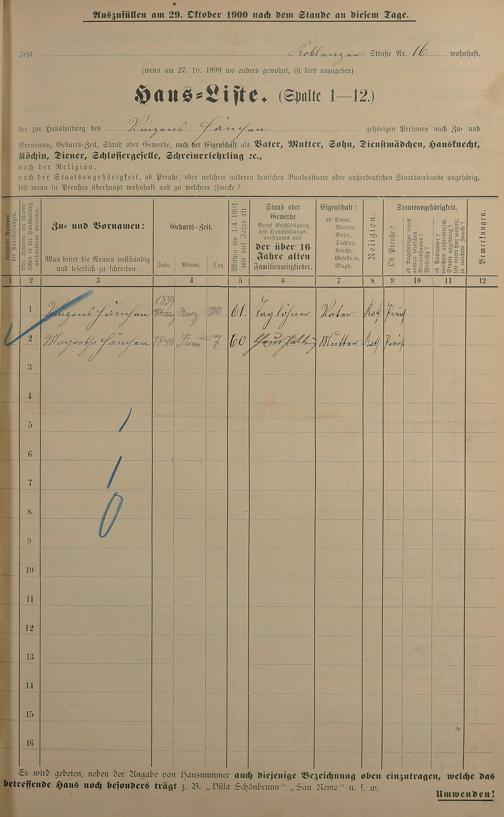 Auszufüllen am 29. Oktober 1900 nach dem Stande an diesem Tage.
Jetzt Koblenzer Straße Nr. 16 wohnhaft.
(wenn am 27. 10. 1899 wo anders gewohnt, ist dies anzugeben)
Haus-Liste. (Spalte 1—12.)
der zur Haushaltung des Vinzens Hänchen gehörigen Personen nach Zu- und
Vornamen, Geburts-Zeit, Stand oder Gewerbe, nach der Eigenschaft als Vater, Mutter, Sohn, Dienstmädchen, Hausknecht,
Köchin, Diener, Schlossergeselle, Schreinerlehrling ec.,
nach der Religion,
nach der Staatsangehörigkeit, ob Preuße, oder welchem anderen deutschen Bundesstaate oder außerdeutschen Staatsverbande angehörig,
seit wann in Preußen überhaupt wohnhaft und zu welchem Zwecke?
Zu- und Vornamen:
Man bittet die Namen vollständig
und leserlich zu schreiben.
Geburts-Zeit.
Jahr. Monat. Tag
Mithin am 1.4.1901
wie viel Jahre alt.
Stand oder
Gewerbe
der über 16
Jahre alten
Familienmitglieder.
Eigenschaft:
ob Vater,
Mutter,
Sohn,
Tochter,
Knecht,
Geselle ec.
Magd.
Religion.
Staatsangehörigkeit.
Ob Preuße?
Bemerkungen.
1 2 3 4 5 6 7 8 9 10 11 12
1 Vinzens Hänchen 1839 März 30 61. Taglöhner Vater Kat Preuß
2 Hänchen 1840 Juni 7 60 Mutter Kat Preuß
3
4
5
6
7
8
9
10
11
12
13
14
15
16
Es wird gebeten, neben der Angabe von Hausnummer auch diejenige Bezeichnung oben einzutragen, welche das
betreffende Haus noch besonders trägt z. B. „Villa Schönbrunn" „San Remo" u. s. w.
Umwenden!